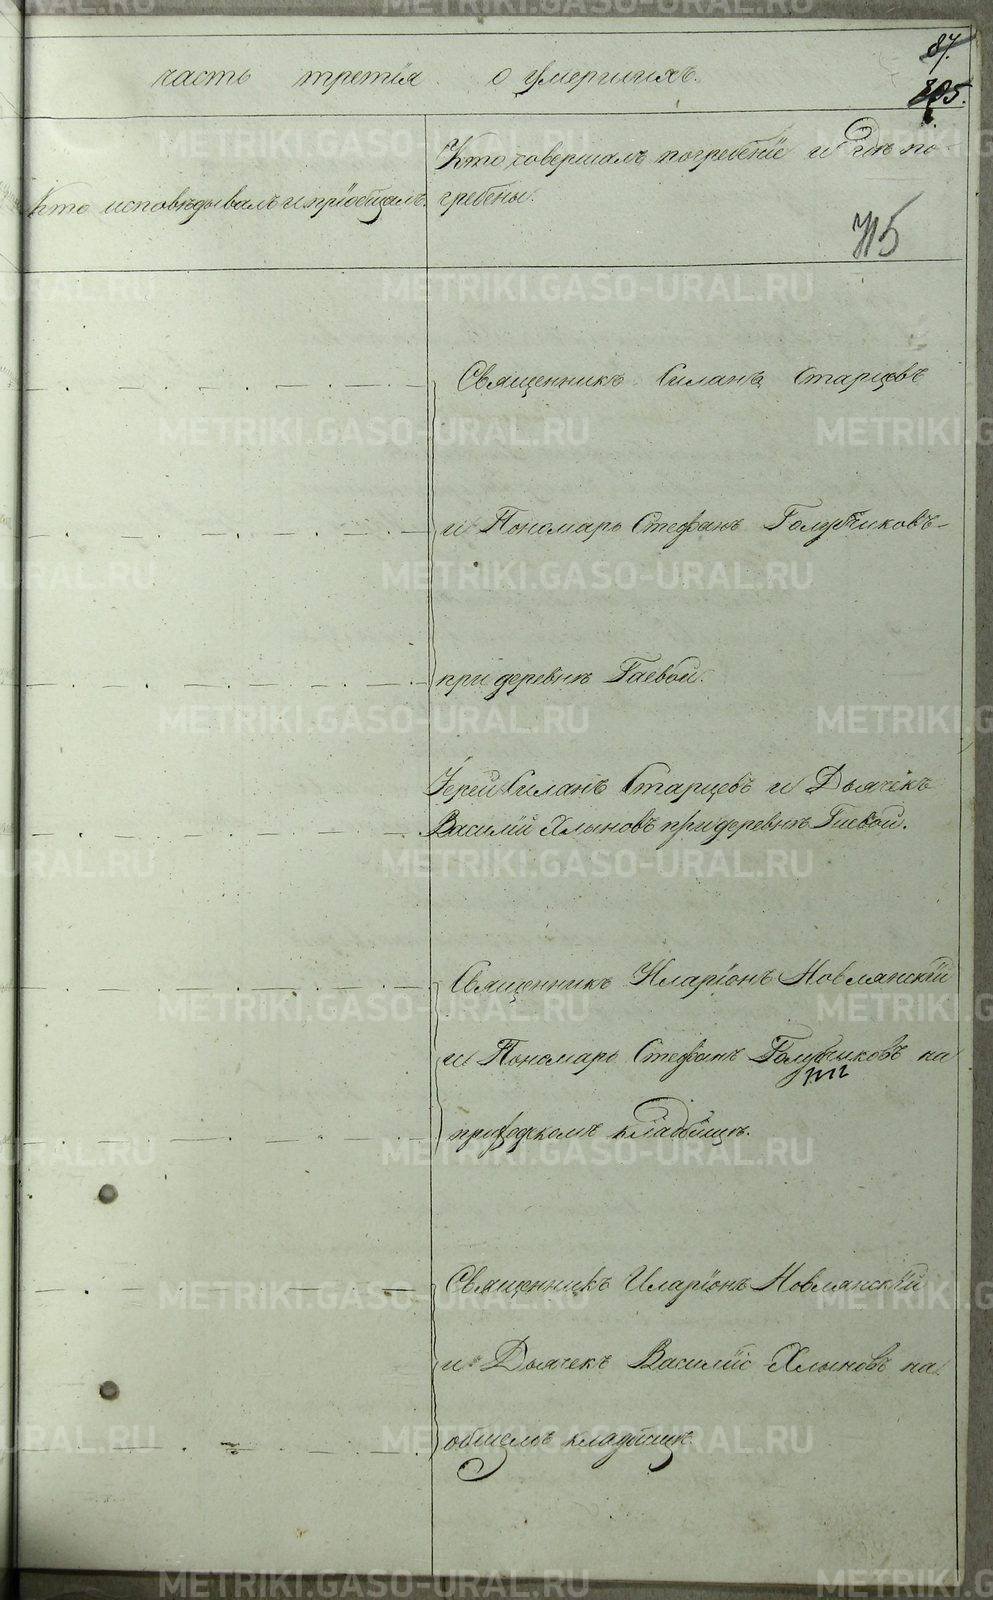 87.
часть третія о умершихъ.
305.
Кто совершалъ погребеніе и гдѣ по-
Кто исповѣдывалъ и пріобщалъ.
гребены.
715
Священникъ Силанъ Старцевъ
и Пономарь Стефанъ Голубчиковъ
при деревнѣ Гаевой.
Іерей Силанъ Старцевъ и Дьячекъ
Василій Хлыновъ при деревнѣ Гаевой.
Священникъ Иларіонъ Новлянскій
и Пономарь Стефанъ Голубчиковъ на
приходскомъ кладбищѣ.
Священникъ Иларіонъ Новлянскій
и Дьячекъ Василій Хлыновъ на
общемъ кладбищѣ.
METRIKI.GASO-URAL.RU